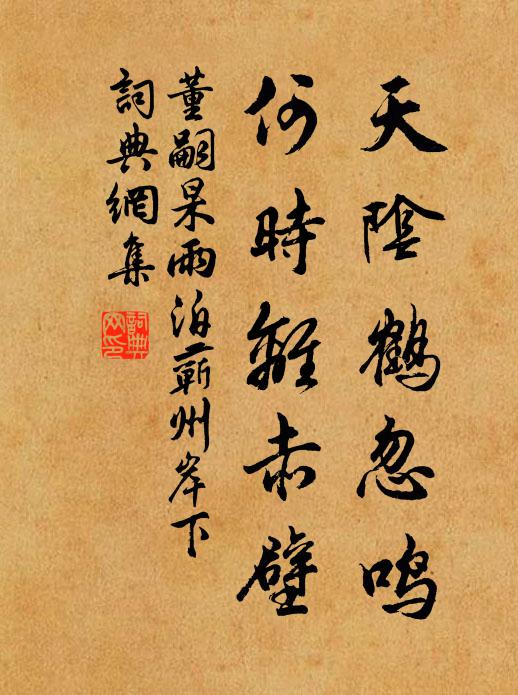 天陰鶴忽鳴
何時離赤壁
董嗣杲雨泊蘄州岸下
詞典網集
詞典網印